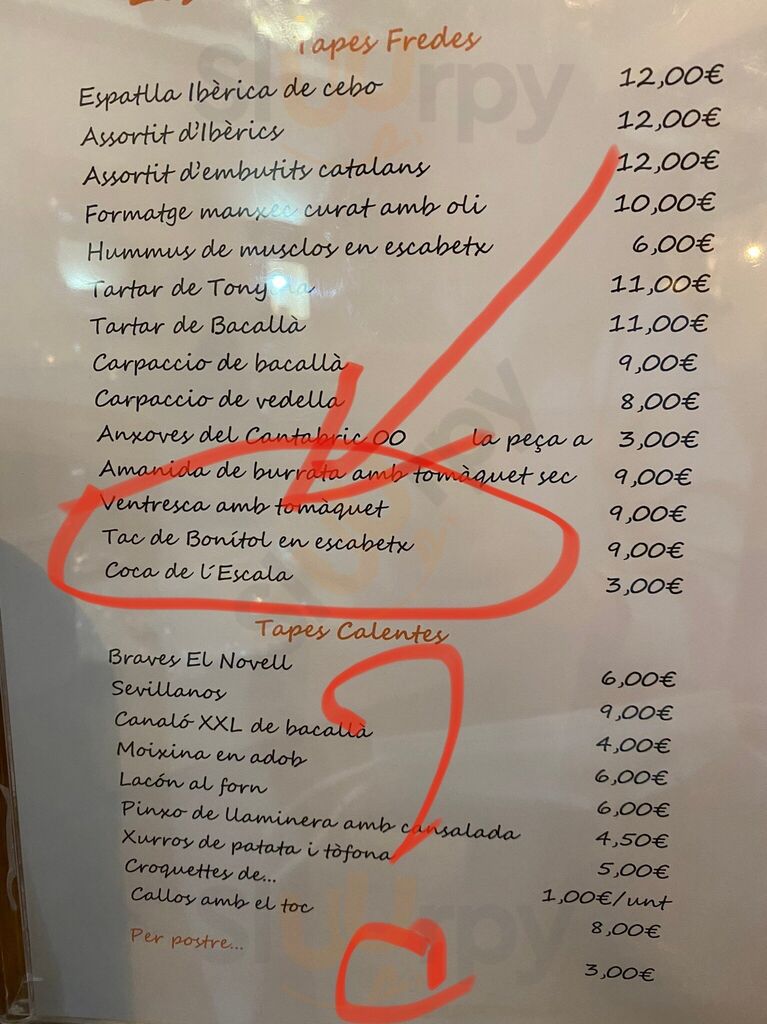 Tapes Fredes
Espatlla Ibèrica de cebo 12,00€
Assortit d'Ibèrics 12,00€
Assortit d'embutits catalans 12,00€
Formatge manxec curat amb oli 10,00€
Hummus de musclos en escabetx 6,00€
Tartar de Tonyina 11,00€
Tartar de Bacallà 11,00€
Carpaccio de bacallà 9,00€
Carpaccio de vedella 8,00€
Anxoves del Cantabric 00 la peça a 3,00€
Amanida de burrata amb tomàquet sec 9,00€
Ventresca amb tomàquet 9,00€
Tac de Bonítol en escabetx 9,00€
Coca de l´Escala 3,00€
Tapes Calentes
Braves El Novell 6,00€
Sevillanos 9,00€
Canaló XXL de bacallà 4,00€
Moixina en adob 6,00€
Lacón al forn 6,00€
Pinxo de llaminera amb cansalada 4,50€
Xurros de patata i tòfona 5,00€
Croquettes de... 1,00€/unt
Callos amb el toc 8,00€
Per postre... 3,00€